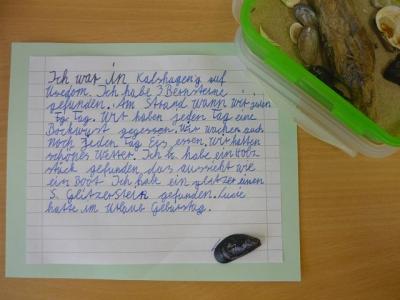 Ich war in Kalshagen auf
Usedom. Ich habe 3 Bernsteine
gefunden. Am Strand wann wir
Tag. Wir haben jeden Tag eine
Bockwurst gegessen. Wir wachen auch
noch jeden Tag Eis essen. Wir hatten
schönes Wetter. Ich habe ein Holz
stück gefunden das aussieht wie
ein Boot. Ich habe ein
Glitzerstein gefunden.
hatte im Urlaub Geburtstag.